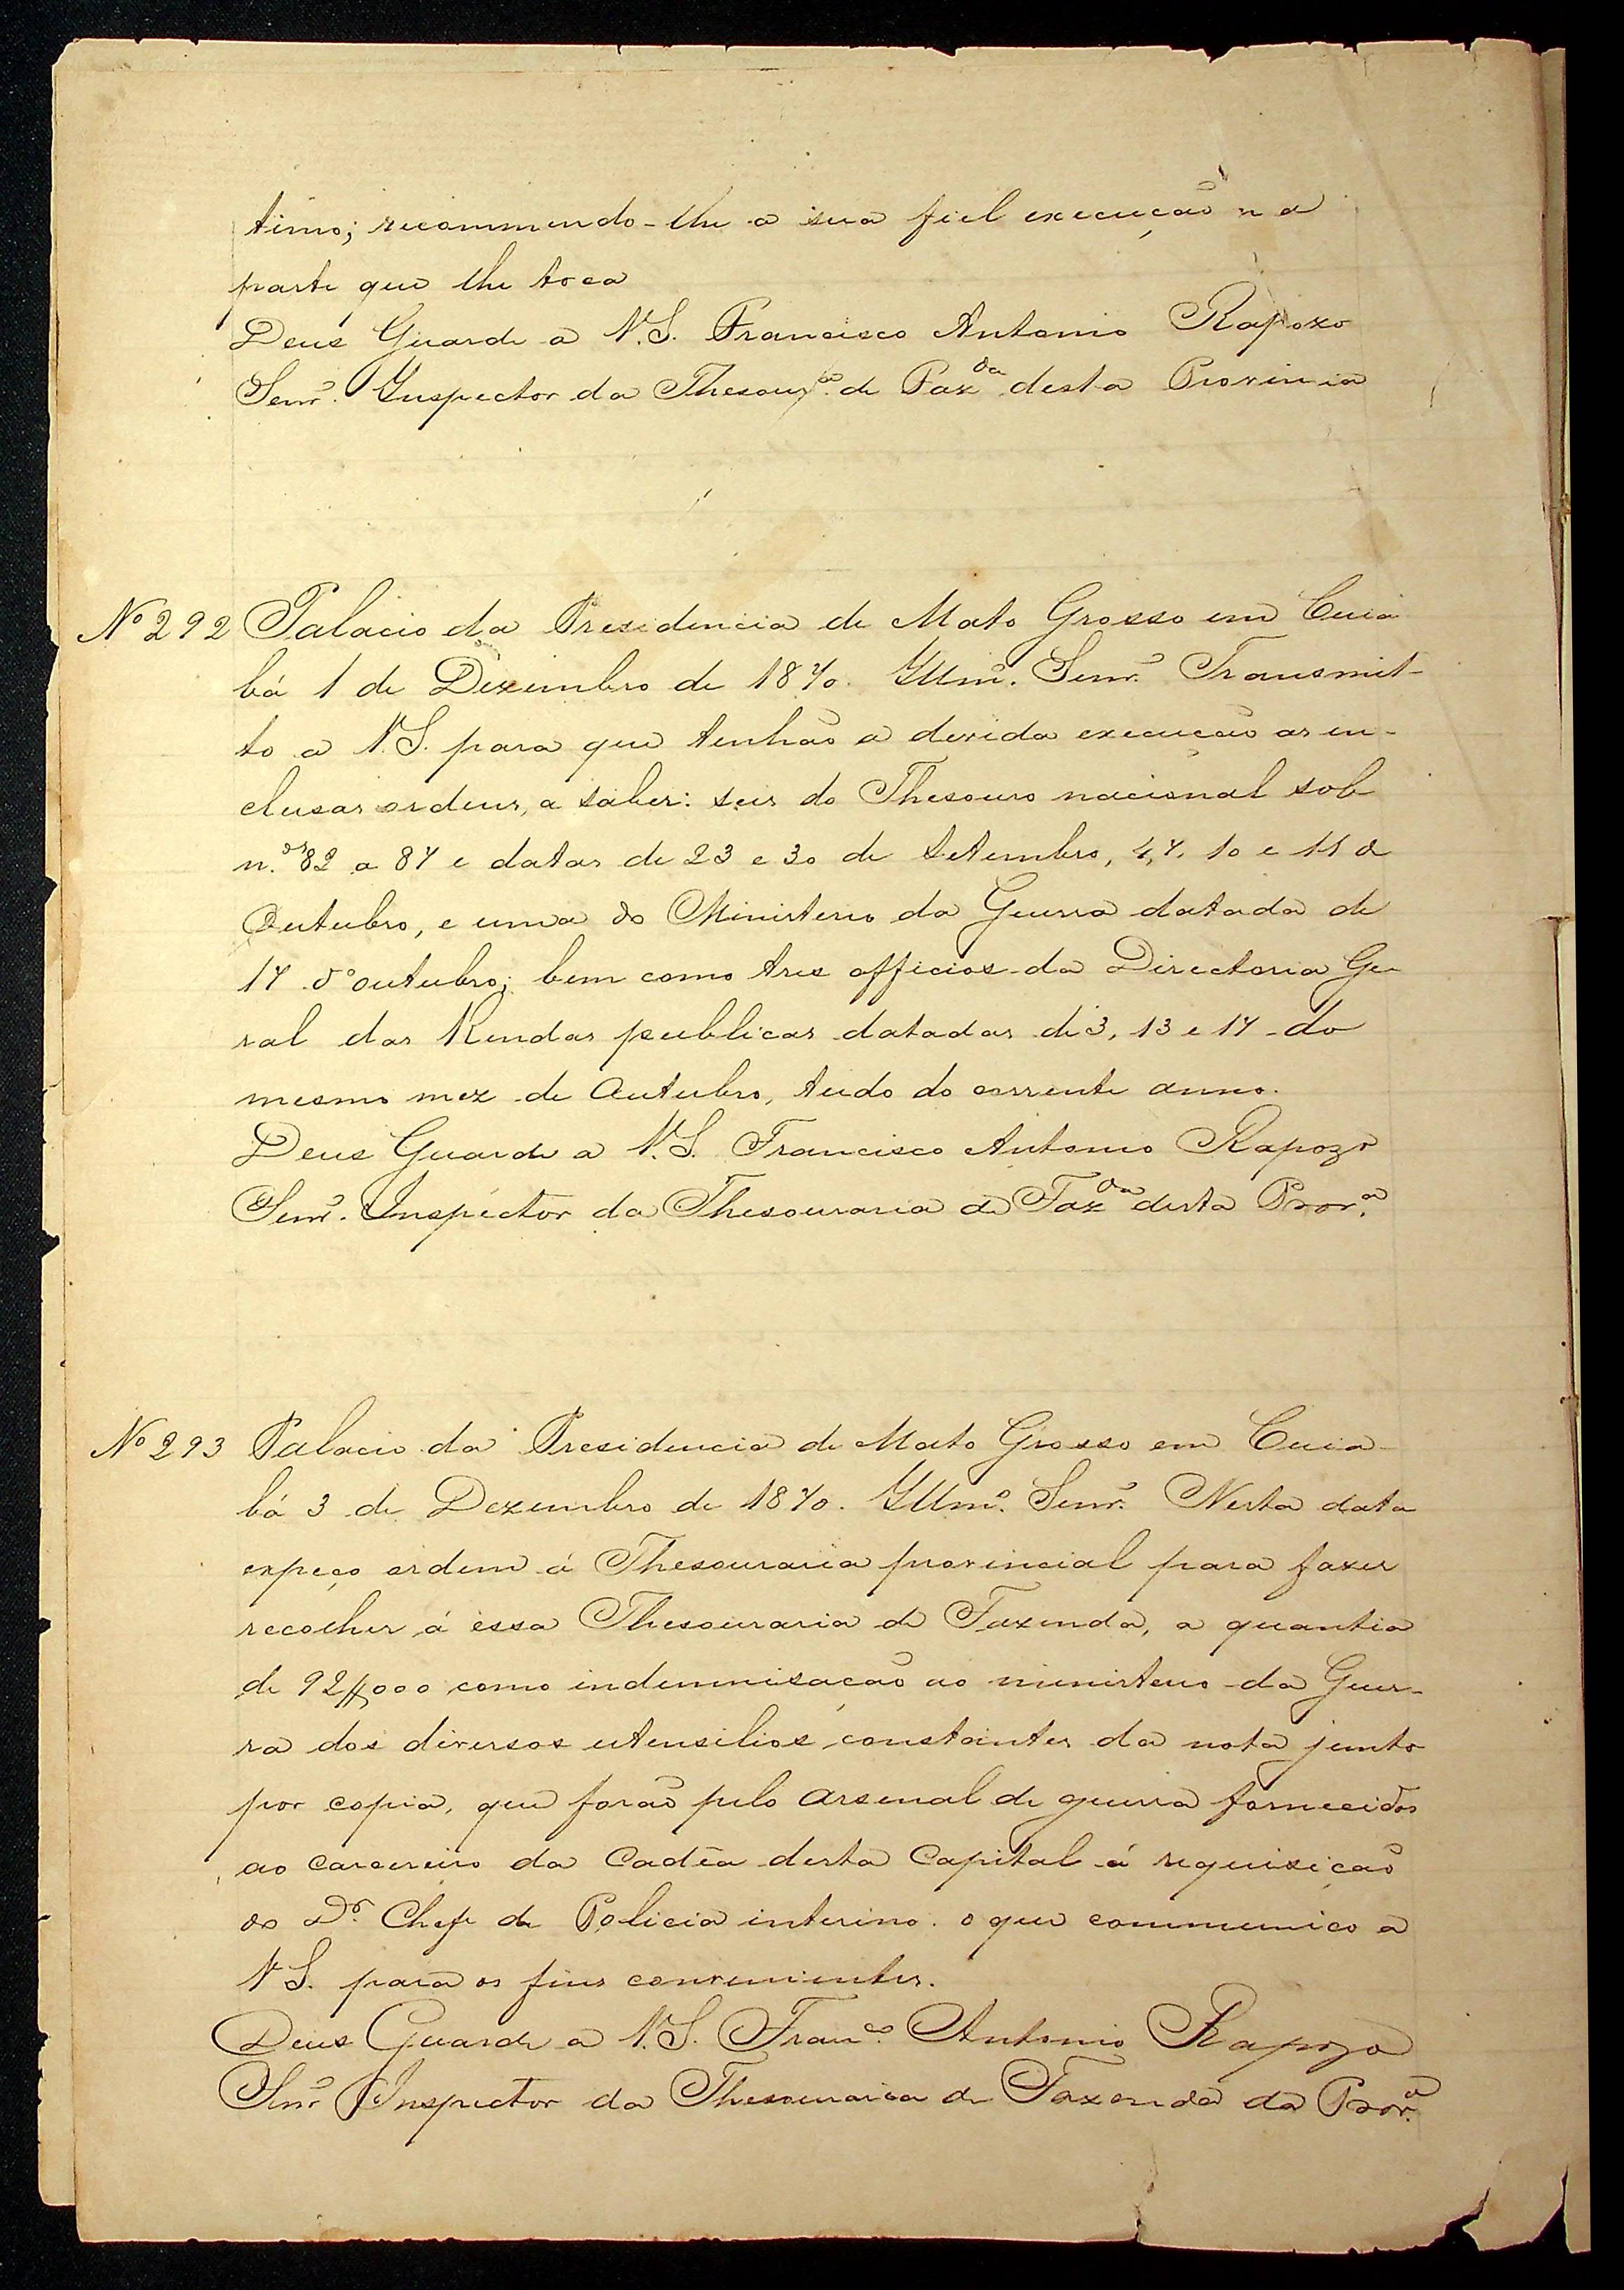 timo; recommendo-lhe a sua fiel execução na
parte que lhe toca
Deus Guarde a V.S. Francisco Antonio Rapozo
Senr. Inspector da Thesourª. de Fazda desta Provincia
Nº 292 Palacio da Presidencia de Mato Grosso em Cuia
bá 1 de Dezembro de 1870. Illmº. Senr. Transmit-
to a V.S. para que tenhão a devida execução as in-
clusas ordens, a saber: seis do Thesouro nacional sob
n.os 82 a 87 e datas de 23 e 30 de Setembro, 4, 7, 10 e 11 d
Outubro, e uma do Ministerio da Guerra datada de
17 do outubro; bem como tres officios da Directoria Ge
ral das Rendas publicas datadas de 3, 13 e 17 do
mesmo mez de Outubro, tudo do corrente anno.
Deus Guarde a V.S. Francisco Antonio Rapozo
Senr. Inspector da Thesouraria de Fazda desta Provª.
Nº 293 Palacio da Presidencia de Mato Grosso em Cuia-
bá 3 de Dezembro de 1870. Illmº. Senr. Nesta data
expeço ordem á Thesouraria provincial para fazer
recolher á essa Thesouraria de Fazenda, a quantia
de 92$000 como indemnisação ao ministerio da Guer-
ra dos diversos utensilios constantes da nota junto
por copia, que forão pelo arsenal de guerra fornecidos
ao carcereiro da Cadêa desta Capital á requizição
do Dr. Chefe de Policia interino. o que communico a
V S. para os fins convenientes.
Deus Guarde a V.S. Franco. Antonio Rapozo
Snr Inspector da Thesouraria de Fazenda da Provª.